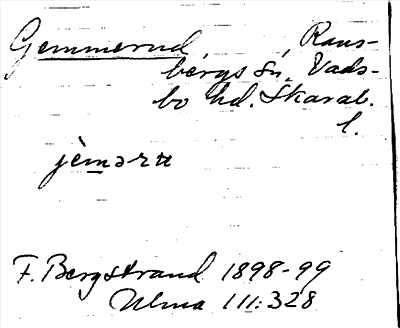 Gemmerud, Rans-
bergs sn, Vads-
bo hd. Skarab.
l.
jèmərʉ
F. Bergstrand 1898-99
Ulma 111:328